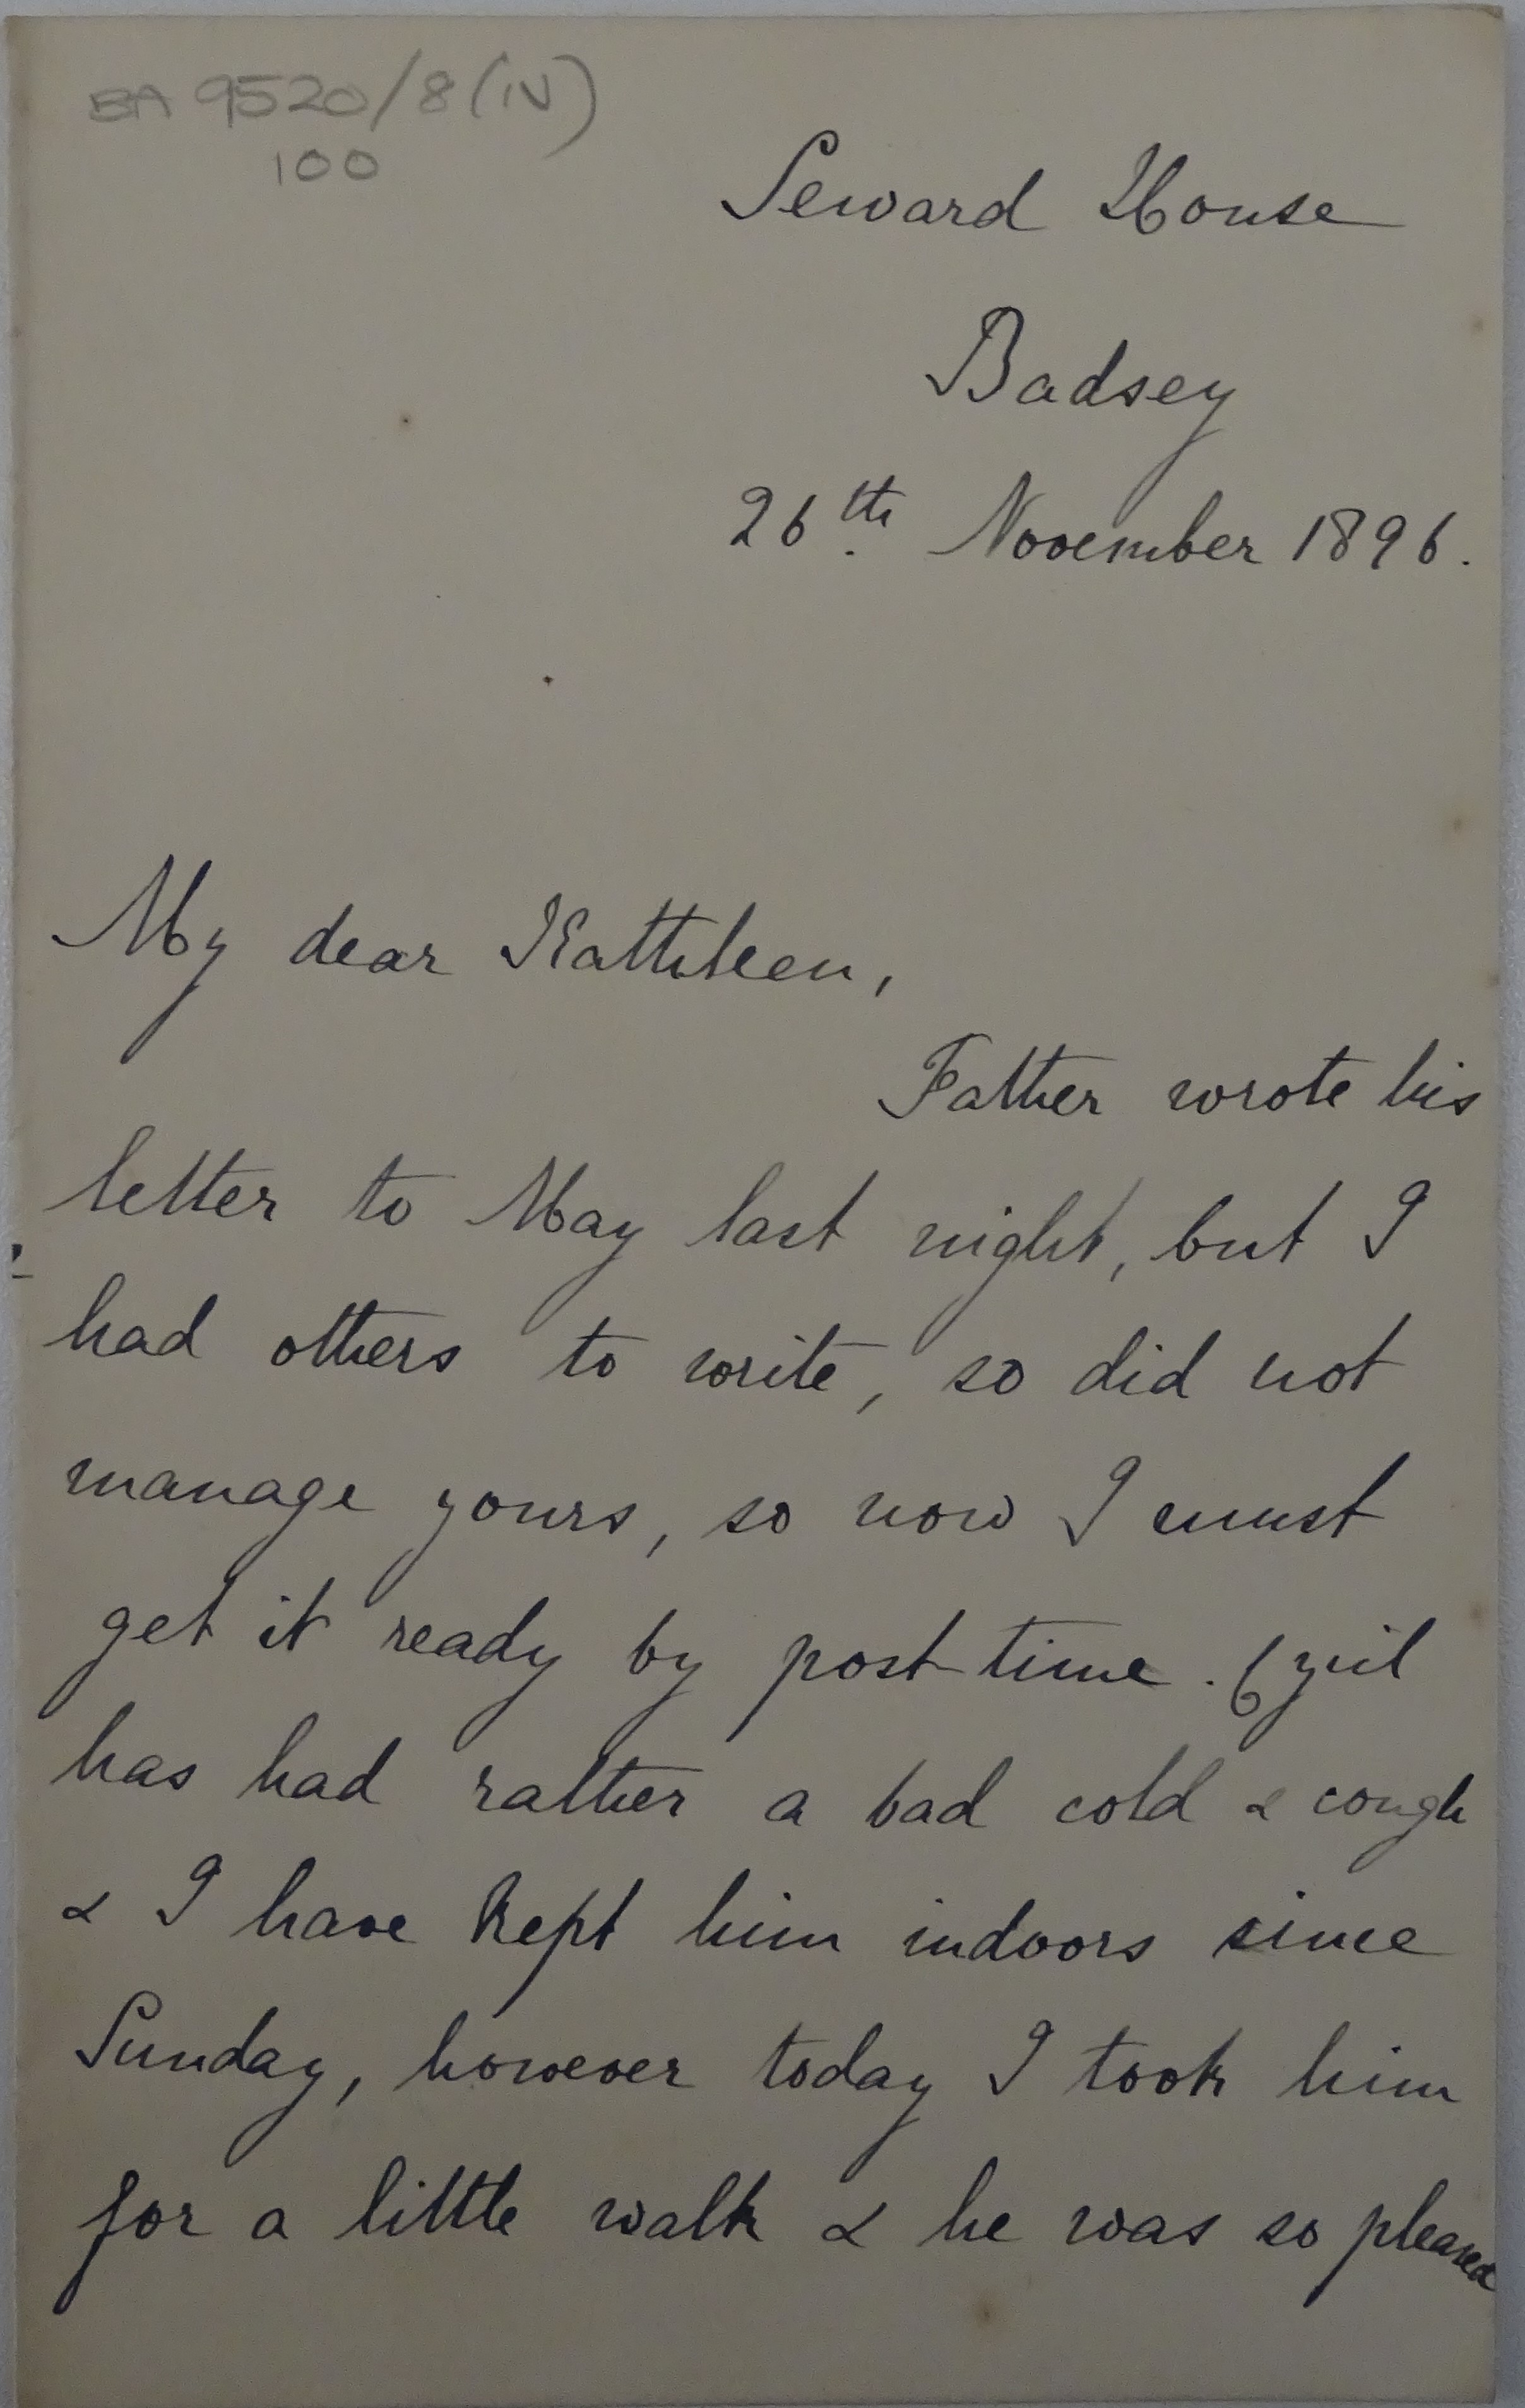 BA 9520/8(iv)
100
Seward House
Badsey
26th November 1896.
My dear Kathleen,
Father wrote his
letter to May last night, but I
had others to write, so did not
manage yours, so now I must
get it ready by post-time. Cyril
has had rather a bad cold & cough
& I have kept him indoors since
Sunday, however today I took him
for a little walk & he was so pleased